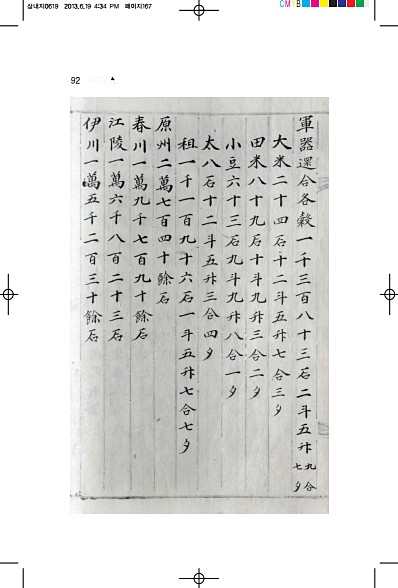 삼내지0619 2013.6.19 4:34 PM 페이지167
CMYB
92
軍器還合各穀一千三百八十三石二斗五升九合七夕
大米二十四石十二斗五升七合三夕
田米八十九石十斗九升三合二夕
小豆六十三石九斗九升八合一夕
太八石十二斗五升三合四夕
租一千一百九十六石一斗五升七合七夕
原州二萬七百四十餘石
春川一萬九千七百九十餘石
江陵一萬六千八百二十三石
伊川一萬五千二百三十餘石